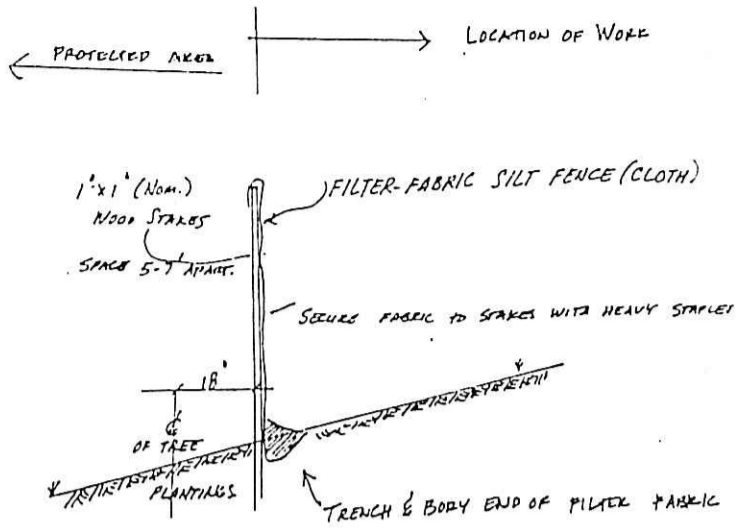 PROTECTED AREA
LOCATION OF WORK
1"x1" (NOM.)
WOOD STAKES
SPACE 5-7' APART.
FILTER-FABRIC SILT FENCE (CLOTH)
SECURE FABRIC TO STAKES WITH HEAVY STAPLES
18'
℄
OF TREE
PLANTINGS
TRENCH & BODY END OF FILTER FABRIC